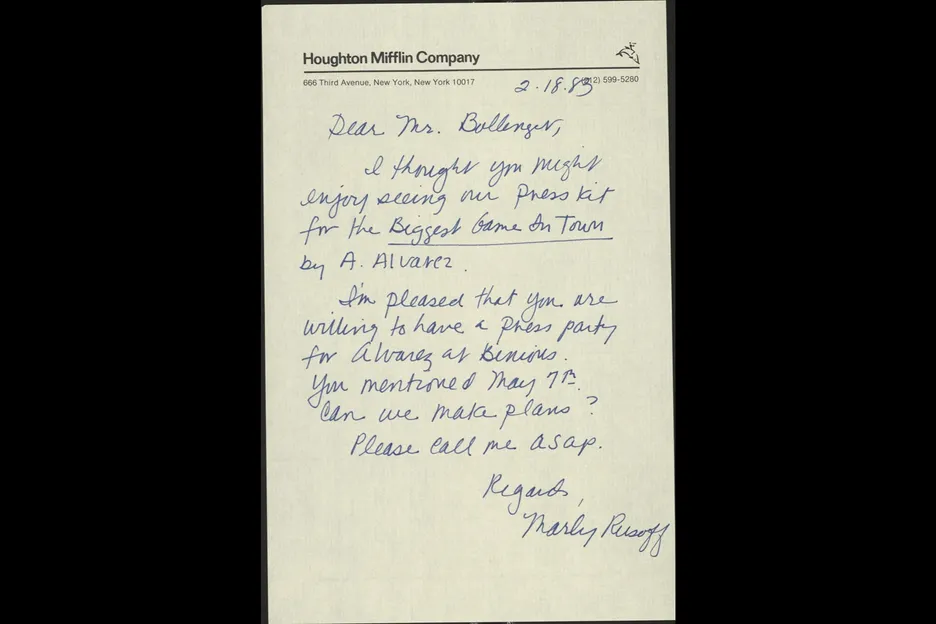 Houghton Mifflin Company
666 Third Avenue, New York, New York 10017 (212) 599-5280
2.18.83
Dear Mr. Bollenger,
I thought you might
enjoy seeing our Press kit
for the Biggest Game In Town
by A. Alvarez.
I'm pleased that you are
willing to have a press party
for Alvarez at Binions.
You mentioned May 7th.
Can we make plans?
Please call me asap.
Regards,
Marly Rusoff